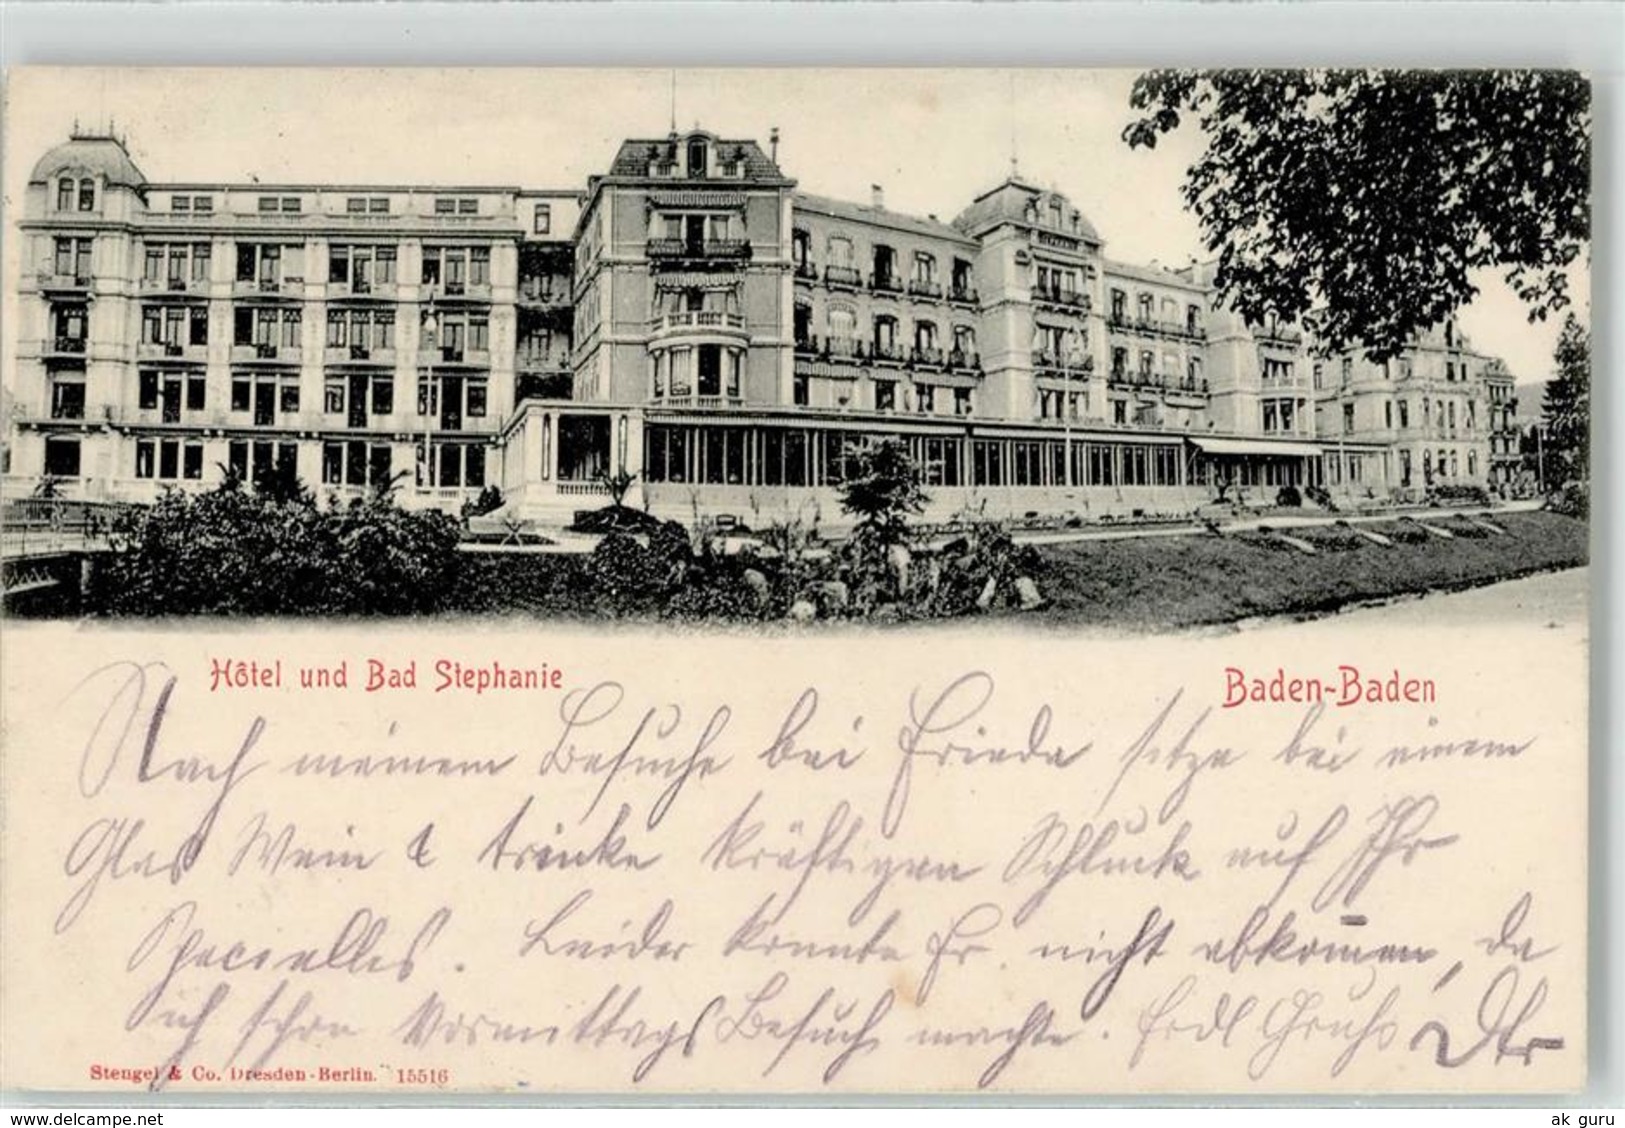 Hôtel und Bad Stephanie
Baden-Baden
Nach meinem Besuche bei Frieda sitze bei einem
Glas Wein & trinke kräftigen Schluck auf Ihr
Specielles. Leider konnte Fr. nicht abkom̄en, da
ich schon Vormittags Besuch machte. Frdl Gruhs
Stengel & Co. Dresden-Berlin. 15516
ak guru